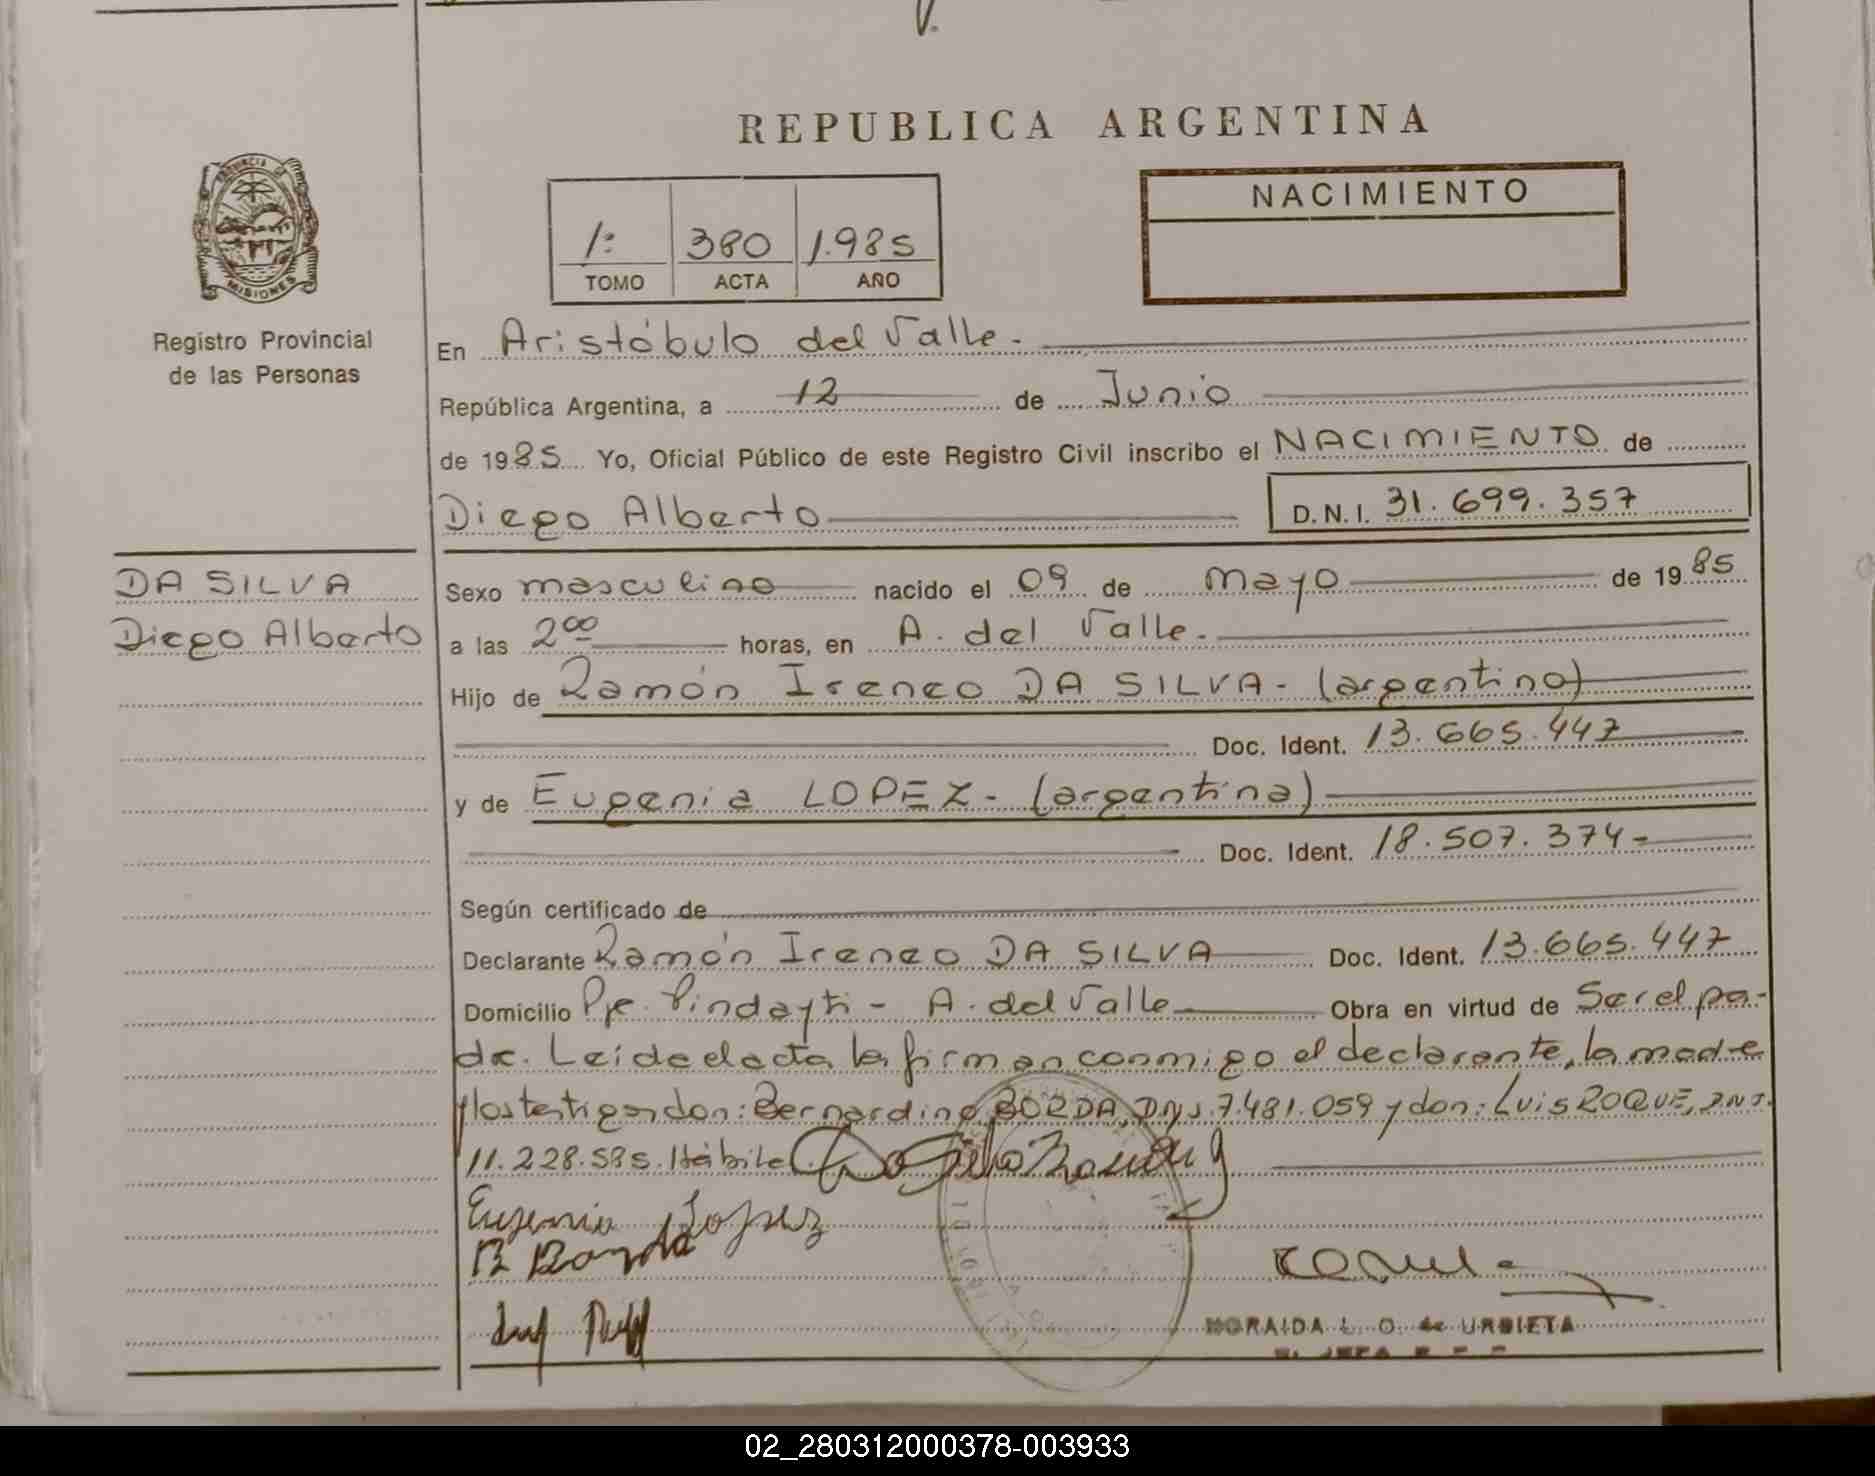 REPUBLICA ARGENTINA
NACIMIENTO
1: 380 1.985
TOMO ACTA AÑO
PROVINCIA DE
MISIONES
Registro Provincial
de las Personas
En Aristóbulo del Valle.
República Argentina, a 12 de Junio
de 1985 Yo, Oficial Público de este Registro Civil inscribo el NACIMIENTO de
Diego Alberto D.N.I. 31.699.357
DA SILVA
Diego Alberto
Sexo masculino nacido el 09 de mayo de 1985
a las 200 horas, en A. del Valle.
Hijo de Ramón Ireneo DA SILVA - (argentino)
Doc. Ident. 13.665.447
y de Eugenia LOPEZ - (argentina)
Doc. Ident. 18.507.374-
Según certificado de
Declarante Ramón Ireneo DA SILVA Doc. Ident. 13.665.447
Domicilio Pje. Pindayti - A. del Valle Obra en virtud de Ser el pa-
dre. Leída el acta la firman conmigo el declarante, la madre
y los testigos don: Bernardino BORDA, DNI. 7.481.059 y don: Luis ROQUE, DNI.
11.228.585. Hábiles
Eugenia Lopez
B Borda
MORAIDA L. O. de URBIETA
02_280312000378-003933